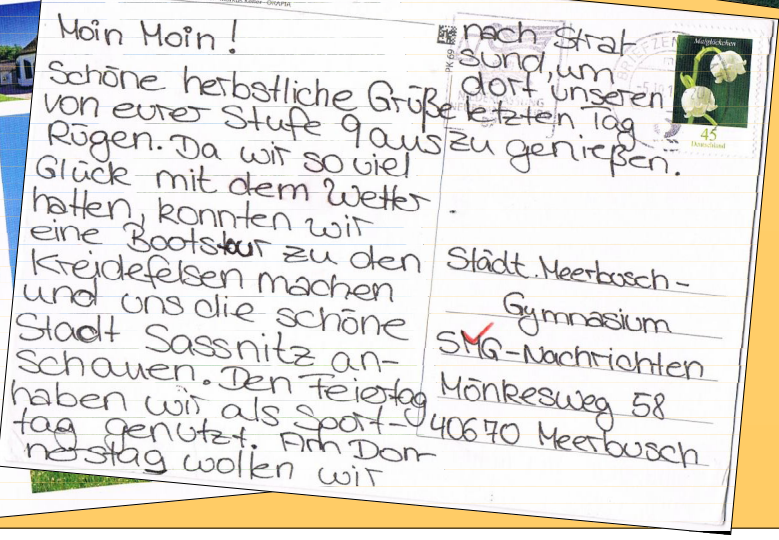 Moin Moin!
Schöne herbstliche Grüße
von eurer Stufe 9 aus
Rügen. Da wir so viel
Glück mit dem Wetter
hatten, konnten wir
eine Bootstour zu den
Kreidefelsen machen
und uns die schöne
Stadt Sassnitz an-
schauen. Den Feiertag
haben wir als Sport-
tag genutzt. Am Don-
nerstag wollen wir
nach Stral
sund, um
dort unseren
letzten Tag
zu genießen.
Maiglöckchen
45
Deutschland
BRIEFZEN
PK 69
Städt. Meerbusch-
Gymnasium
SMG-Nachrichten
Mönkesweg 58
40670 Meerbusch